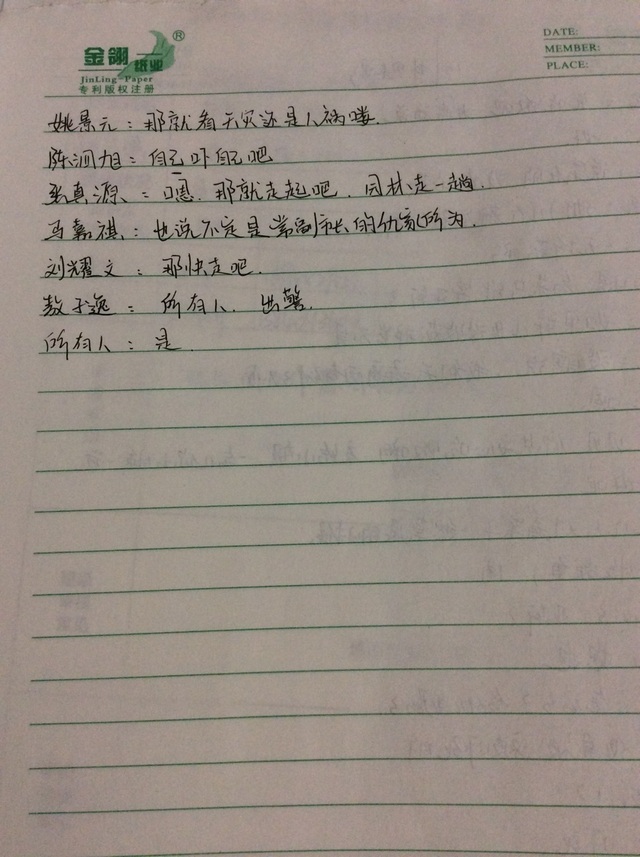 金翎纸业®
JinLing Paper
专利版权注册
DATE:
MEMBER:
PLACE:
姚景元：那就看天灾还是人祸喽.
陈泗旭：自己吓自己吧
张真源：嗯.那就走起吧.园林走一趟.
马嘉祺：也说不定是常副市长的仇家所为.
刘耀文：那快走吧.
敖子逸：所有人.出警.
所有人：是.